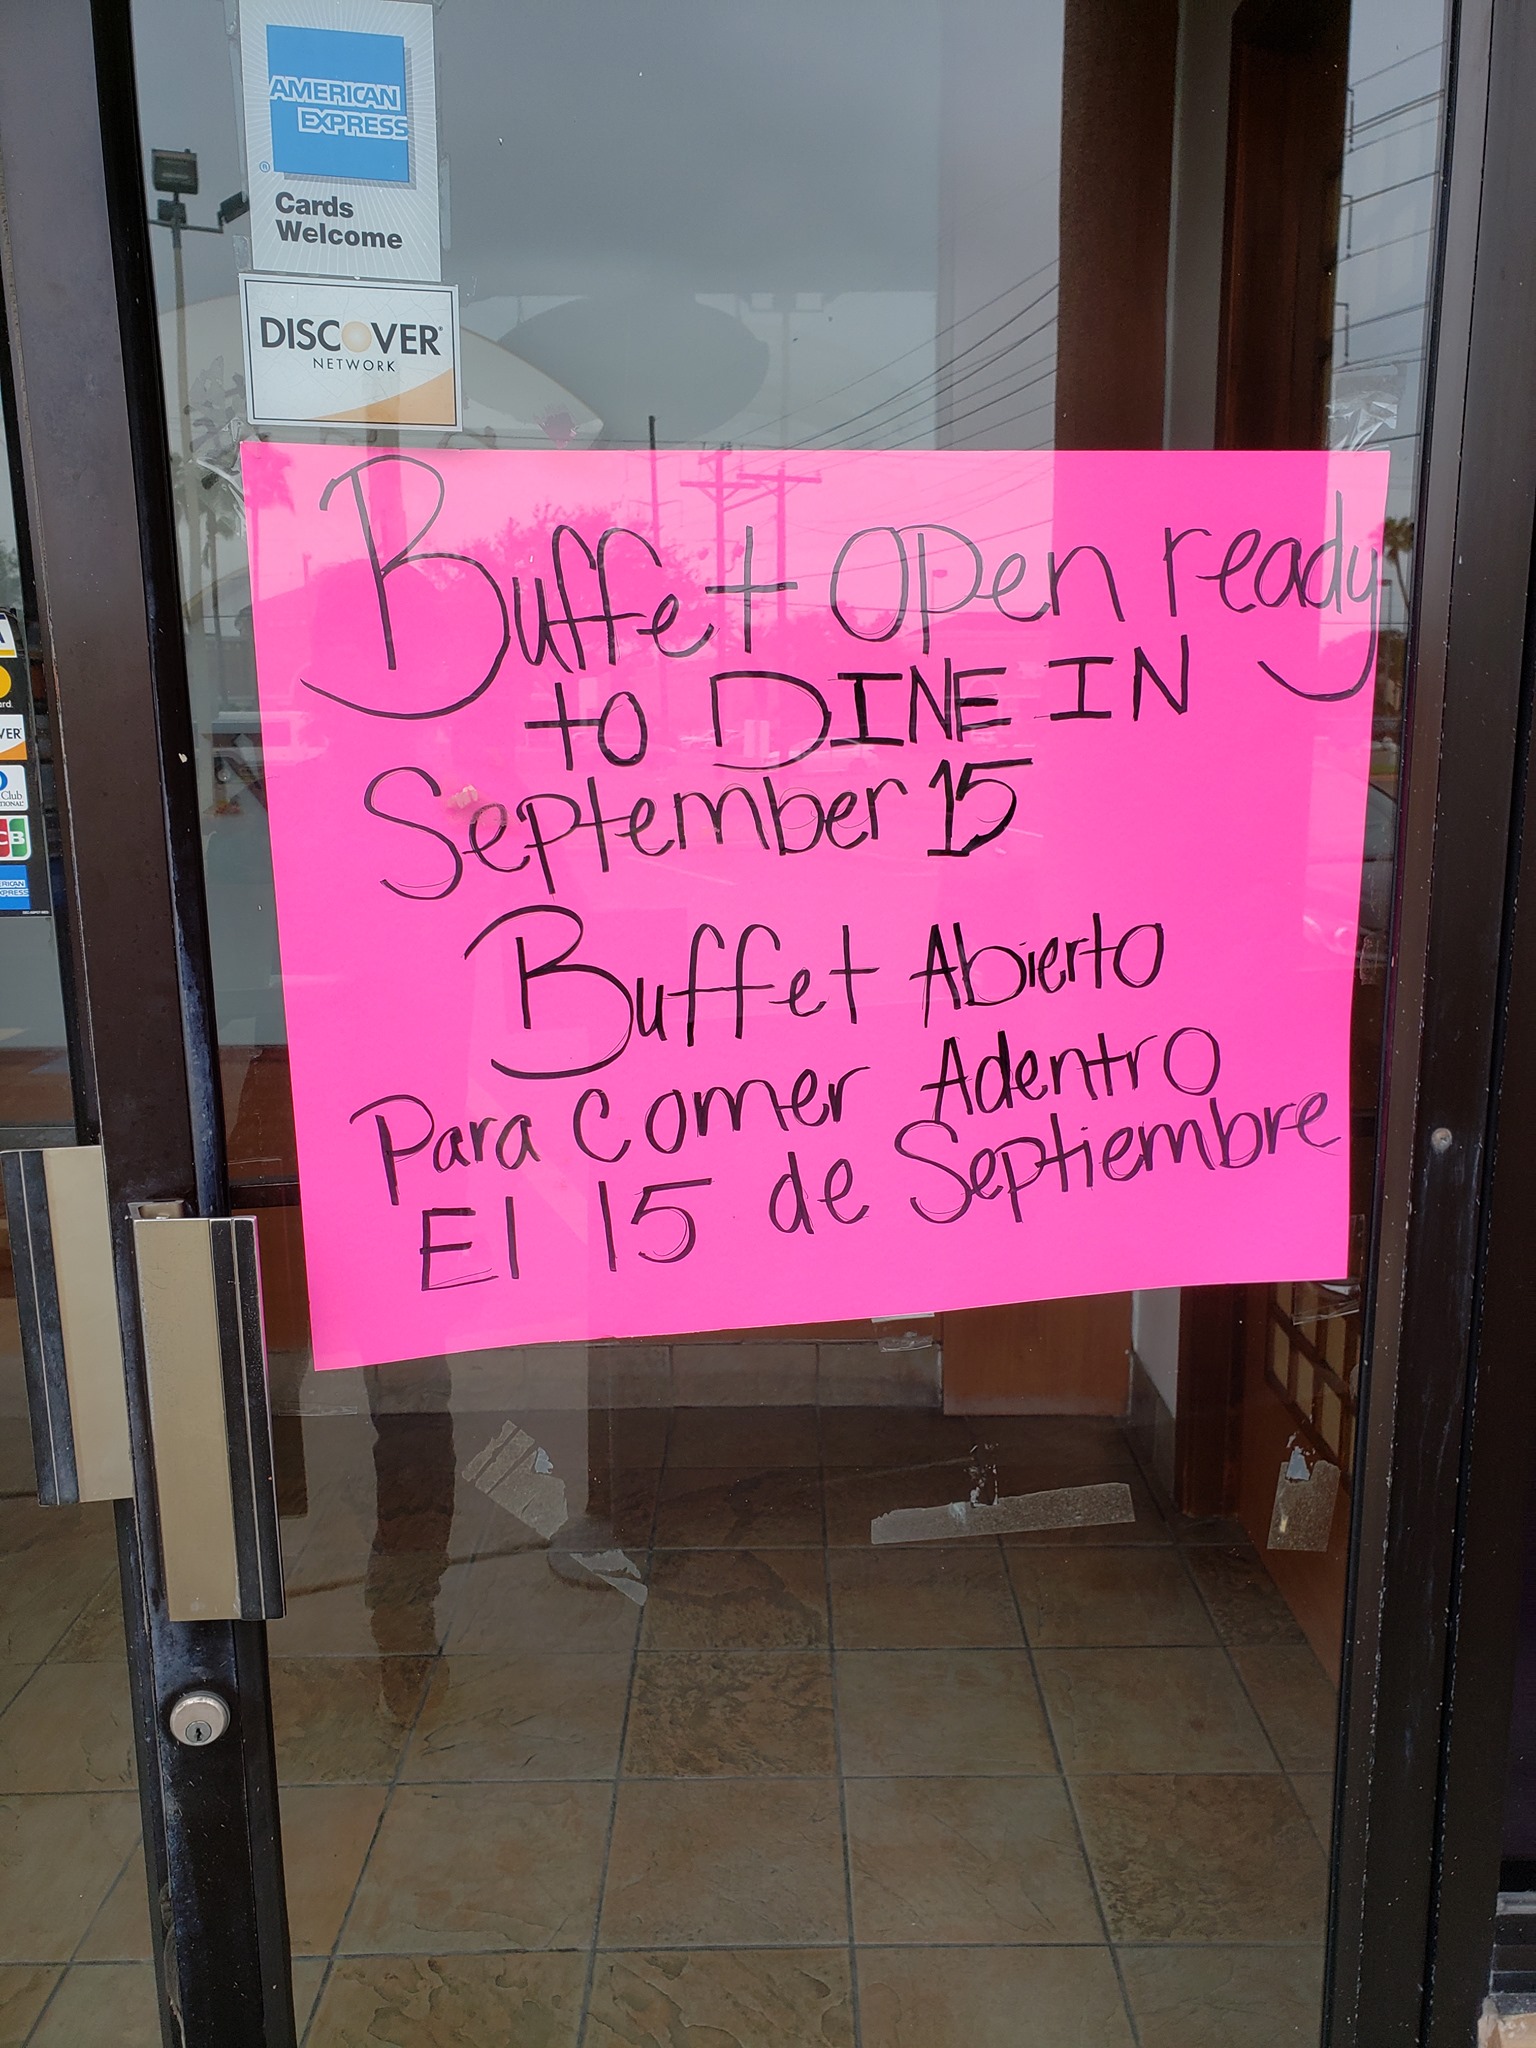 AMERICAN
EXPRESS
®
Cards
Welcome
DISCOVER®
NETWORK
Buffet Open ready
to DINE IN
September 15
Buffet Abierto
Para comer Adentro
El 15 de Septiembre
VER
Club
CB
RICAN
PRESS